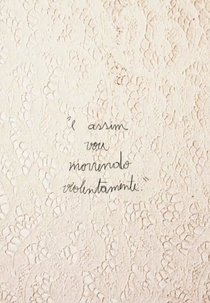 "e assim
vou
morrendo
violentamente."